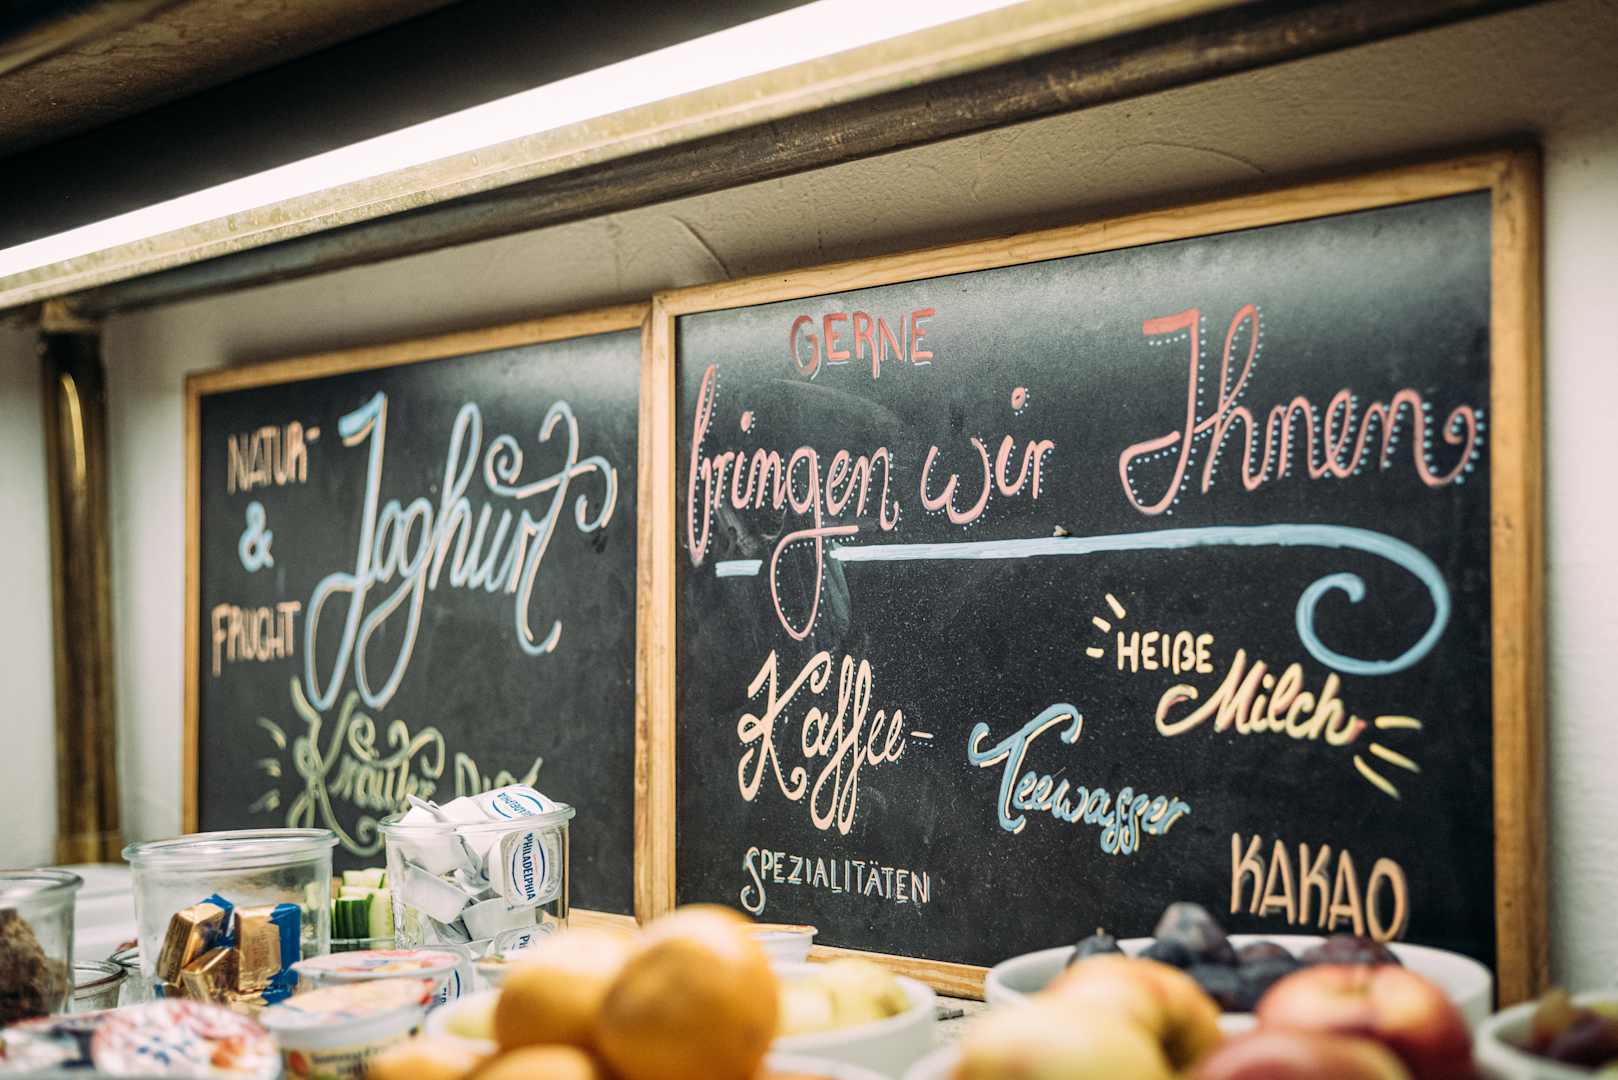 NATUR-
&
FRUCHT
Joghurt
Kräuter
GERNE
bringen wir Ihnen
HEIßE
Milch
Kaffee-
SPEZIALITÄTEN
Teewasser
KAKAO
PHILADELPHIA
PHILADELPHIA